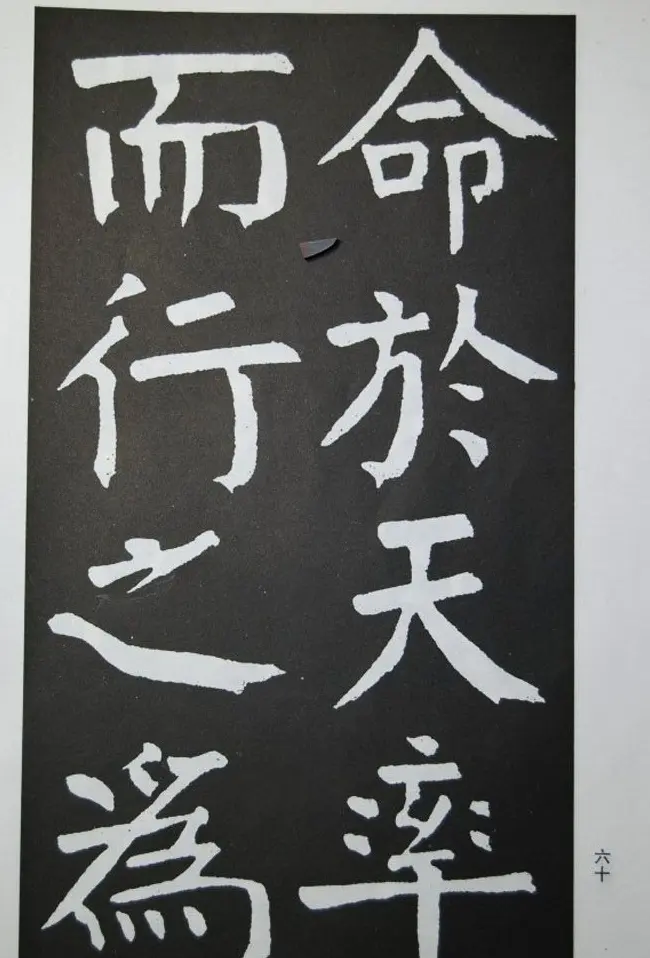 命於天率
而行之為
六十